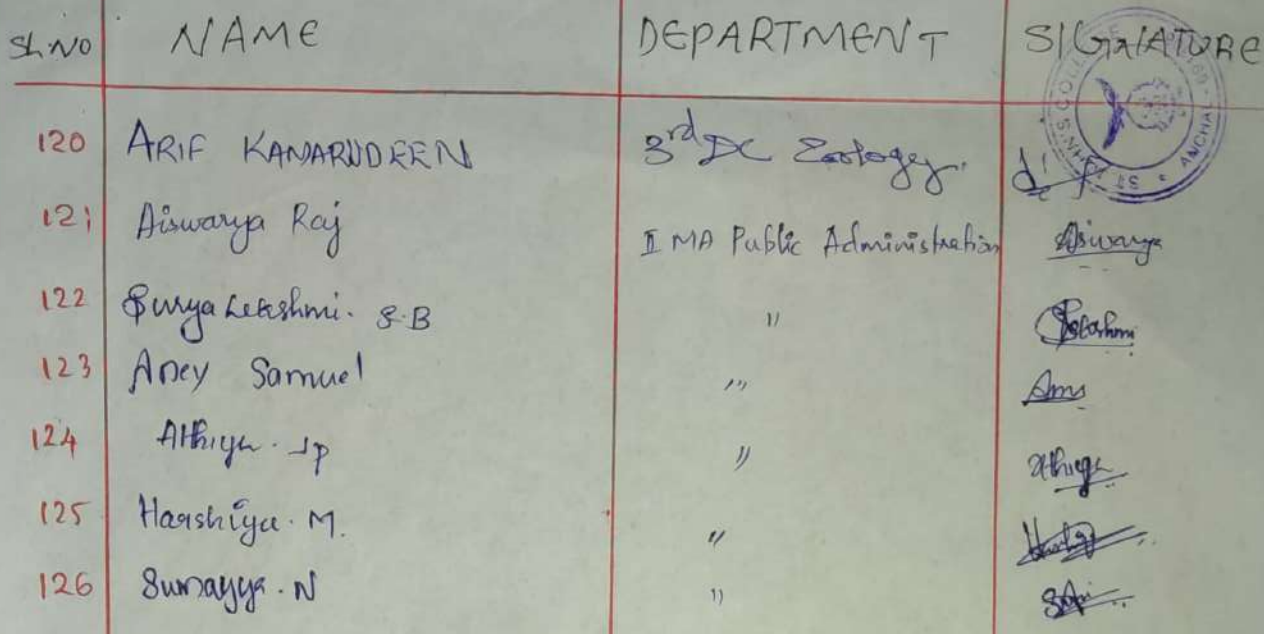 Sl.No NAME DEPARTMENT SIGNATURE
120 ARIF KAMARUDEEN 3rd DC Zoology.
121 Aiswarya Raj II MA Public Administration Aiswarya
122 Surya Lekshmi. S.B " Lekshmi
123 Aney Samuel "
124 Athiya. J P " Athiya
125 Harshiya. M. "
126 Sumayya. N "
ST JOHN'S COLLEGE ANCHAL